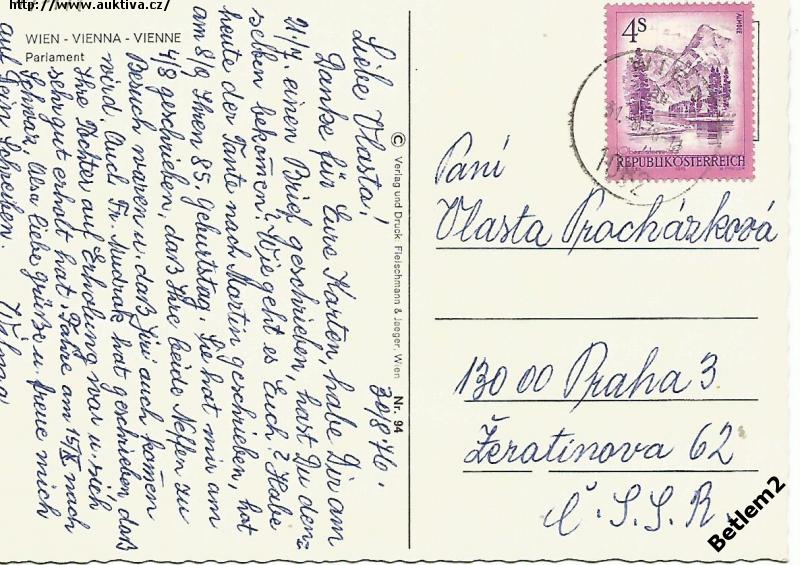 http://www.auktiva.cz/
WIEN - VIENNA - VIENNE
Parlament
30/8 76.
Liebe Vlasta!
Danke für Eure Karten, habe Dir am
21/7. einen Brief geschrieben, hast Du den-
selben bekommen? Wie geht es Euch? Habe
heute der Tante nach Martin geschrieben, hat
am 8/9 Ihren 85. Geburtstag. Sie hat mir am
4/8 geschrieben, daß Ihre beide Neffen zu
Besuch waren u. daß Jiri auch kommen
wird. Auch Fr. Mudrak hat geschrieben daß
Ihre Tochter auf Erholung war u. sich
sehr gut erholt hat. Fahre am 15/IX nach
liebe Grüße u. freue mich
auf Dein Schreiben.
Wilma
© Verlag und Druck: Fleischmann & Jaeger, Wien Nr. 94
4S
ALMSEE
REPUBLIK ÖSTERREICH
Paní
Vlasta Prachárková
130 00 Praha 3
Žeratinova 62
Č. S. S. R.
Betlem2